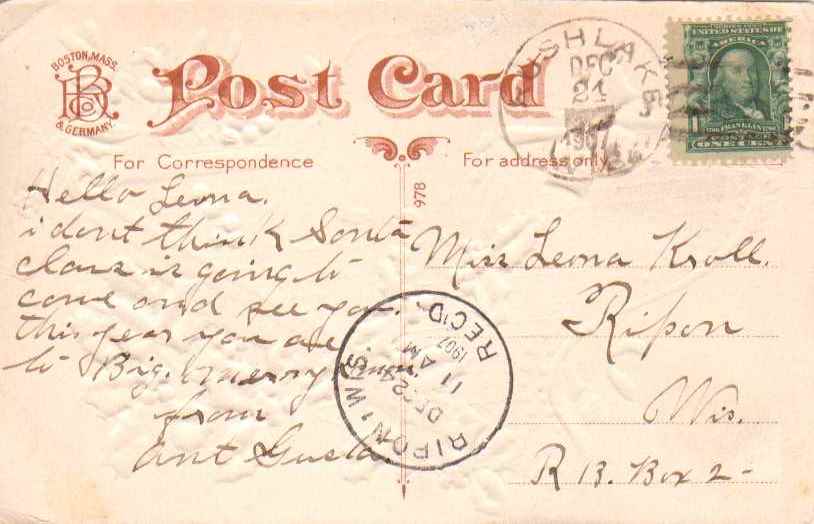 BOSTON, MASS.
B CO
& GERMANY.
Post Card
For Correspondence
For address only.
978
Hello Leona.
i dont think Santa
claus is going to
come and see you.
this year you are
to Big. merry
from
ant Gusta.
Miss Leona Kroll.
Ripon
Wis.
R 13. Box 2-
RIPON, WIS.
DEC 24
11 AM
1907
REC'D
RUSH LAKE
DEC
21
1907
WIS.
UNITED STATES OF
AMERICA
FRANKLIN
POSTAGE
ONE CENT